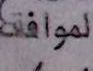 لموافقة